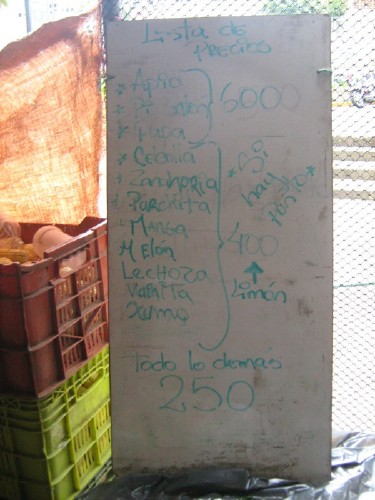 Lista de
Precios
* Apio
* Pimenton
* Papa
6000
* Cebolla
* Zanahoria
* Parchita
* Mango
Melón
Lechoza
Vainita
400
Limón
* Si *
hay
Todo lo demás
250